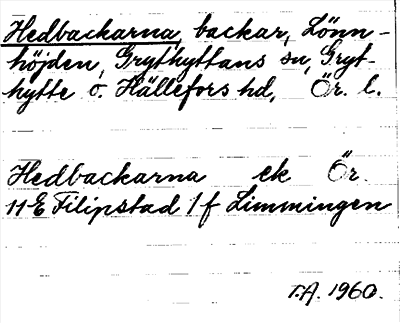 Hedbackarna, backar, Lönn-
höjden, Grythyttans sn, Gryt-
hytte o. Hällefors hd, Ör. l.
Hedbackarna ek Ör.
11E Filipstad 1f Limmingen
T.A. 1960.